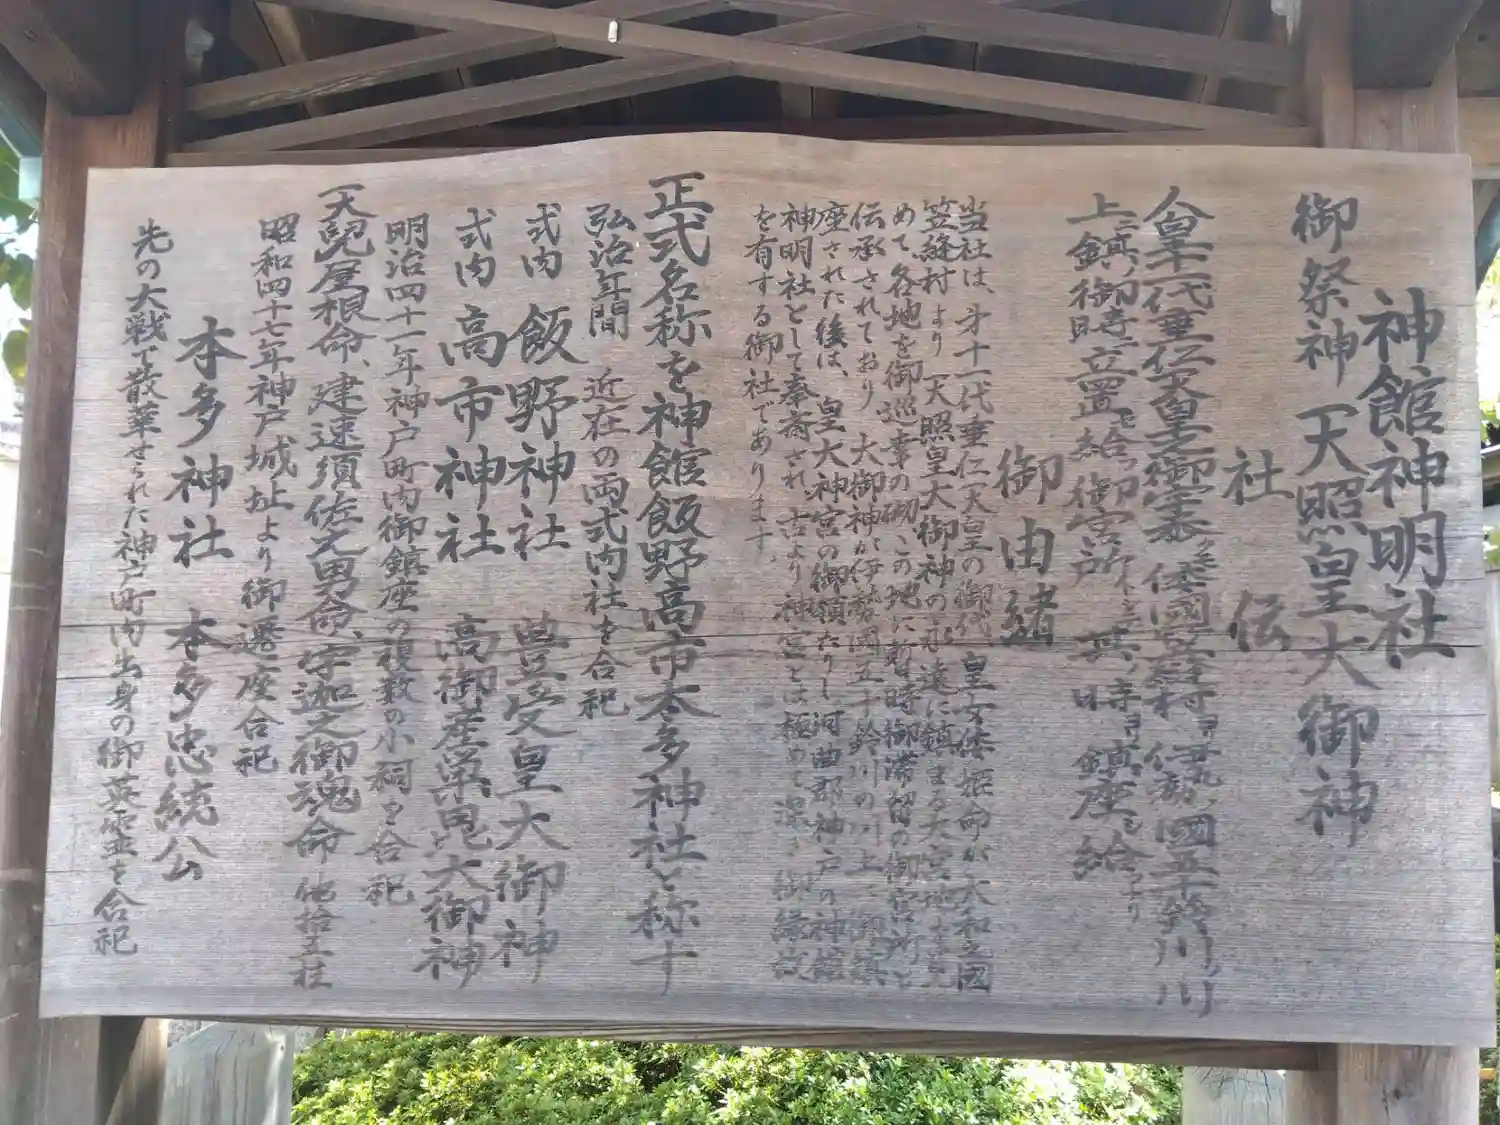 神館神明社
御祭神 天照皇大御神
社 伝
人皇十一代垂仁天皇之御宇泰 倭國笠縫村ヨリ 伊勢國五十鈴川ノ川
上ニ鎮御時ニ立置給フ御宮所 其時ヨリ鎮座シ給
御由緒
当社は、才十一代垂仁天皇の御代、皇女倭姫命が大和之國
笠縫村より 天照皇大御神の永遠に鎮まる大宮地を求
めて、各地を御巡幸の砌、この地に暫時御滞留の御宮所と
伝承されており 大御神が伊勢國五十鈴川の川上に御鎮
座された後は、皇大神宮の御領たりし河曲郡神戸の神館
神明社として奉斎され、古より神宮とは極めて深い御縁故
を有する御社であります。
正式名称を神館飯野高市本多神社と称す
弘治年間 近在の両式内社を合祀
式内 飯野神社 豊受皇大御神
式内 高市神社 高御産巣毘大御神
明治四十一年神戸町内御鎮座の複数の小祠を合祀
天児屋根命、建速須佐之男命、宇迦之御魂命 他拾五柱
昭和四十七年神戸城址より御遷座合祀
本多神社 本多忠統公
先の大戦で散華せられた神戸町内出身の御英霊を合祀